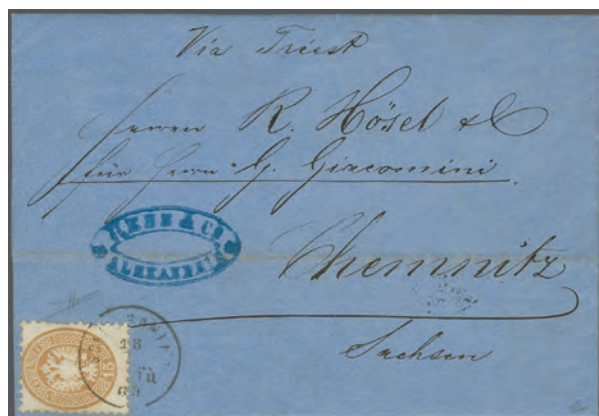 Via Triest
Herren R. Hösel & C
für Herrn G. Giacomini
& CO
ALEXANDRIE
Chemnitz
Sachsen
15
18
65